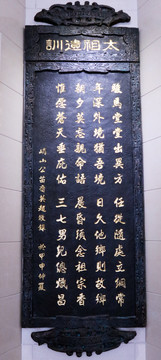 太祖遺訓
駿馬堂堂出異方 任從隨處立綱常
年深外境猶吾境 日久他鄉則故鄉
朝夕莫忘親命語 晨昏須念祖宗香
惟愿蒼天垂庇佑 三七男兒總熾昌
峭山公裔孫英超敬錄 於甲申仲夏